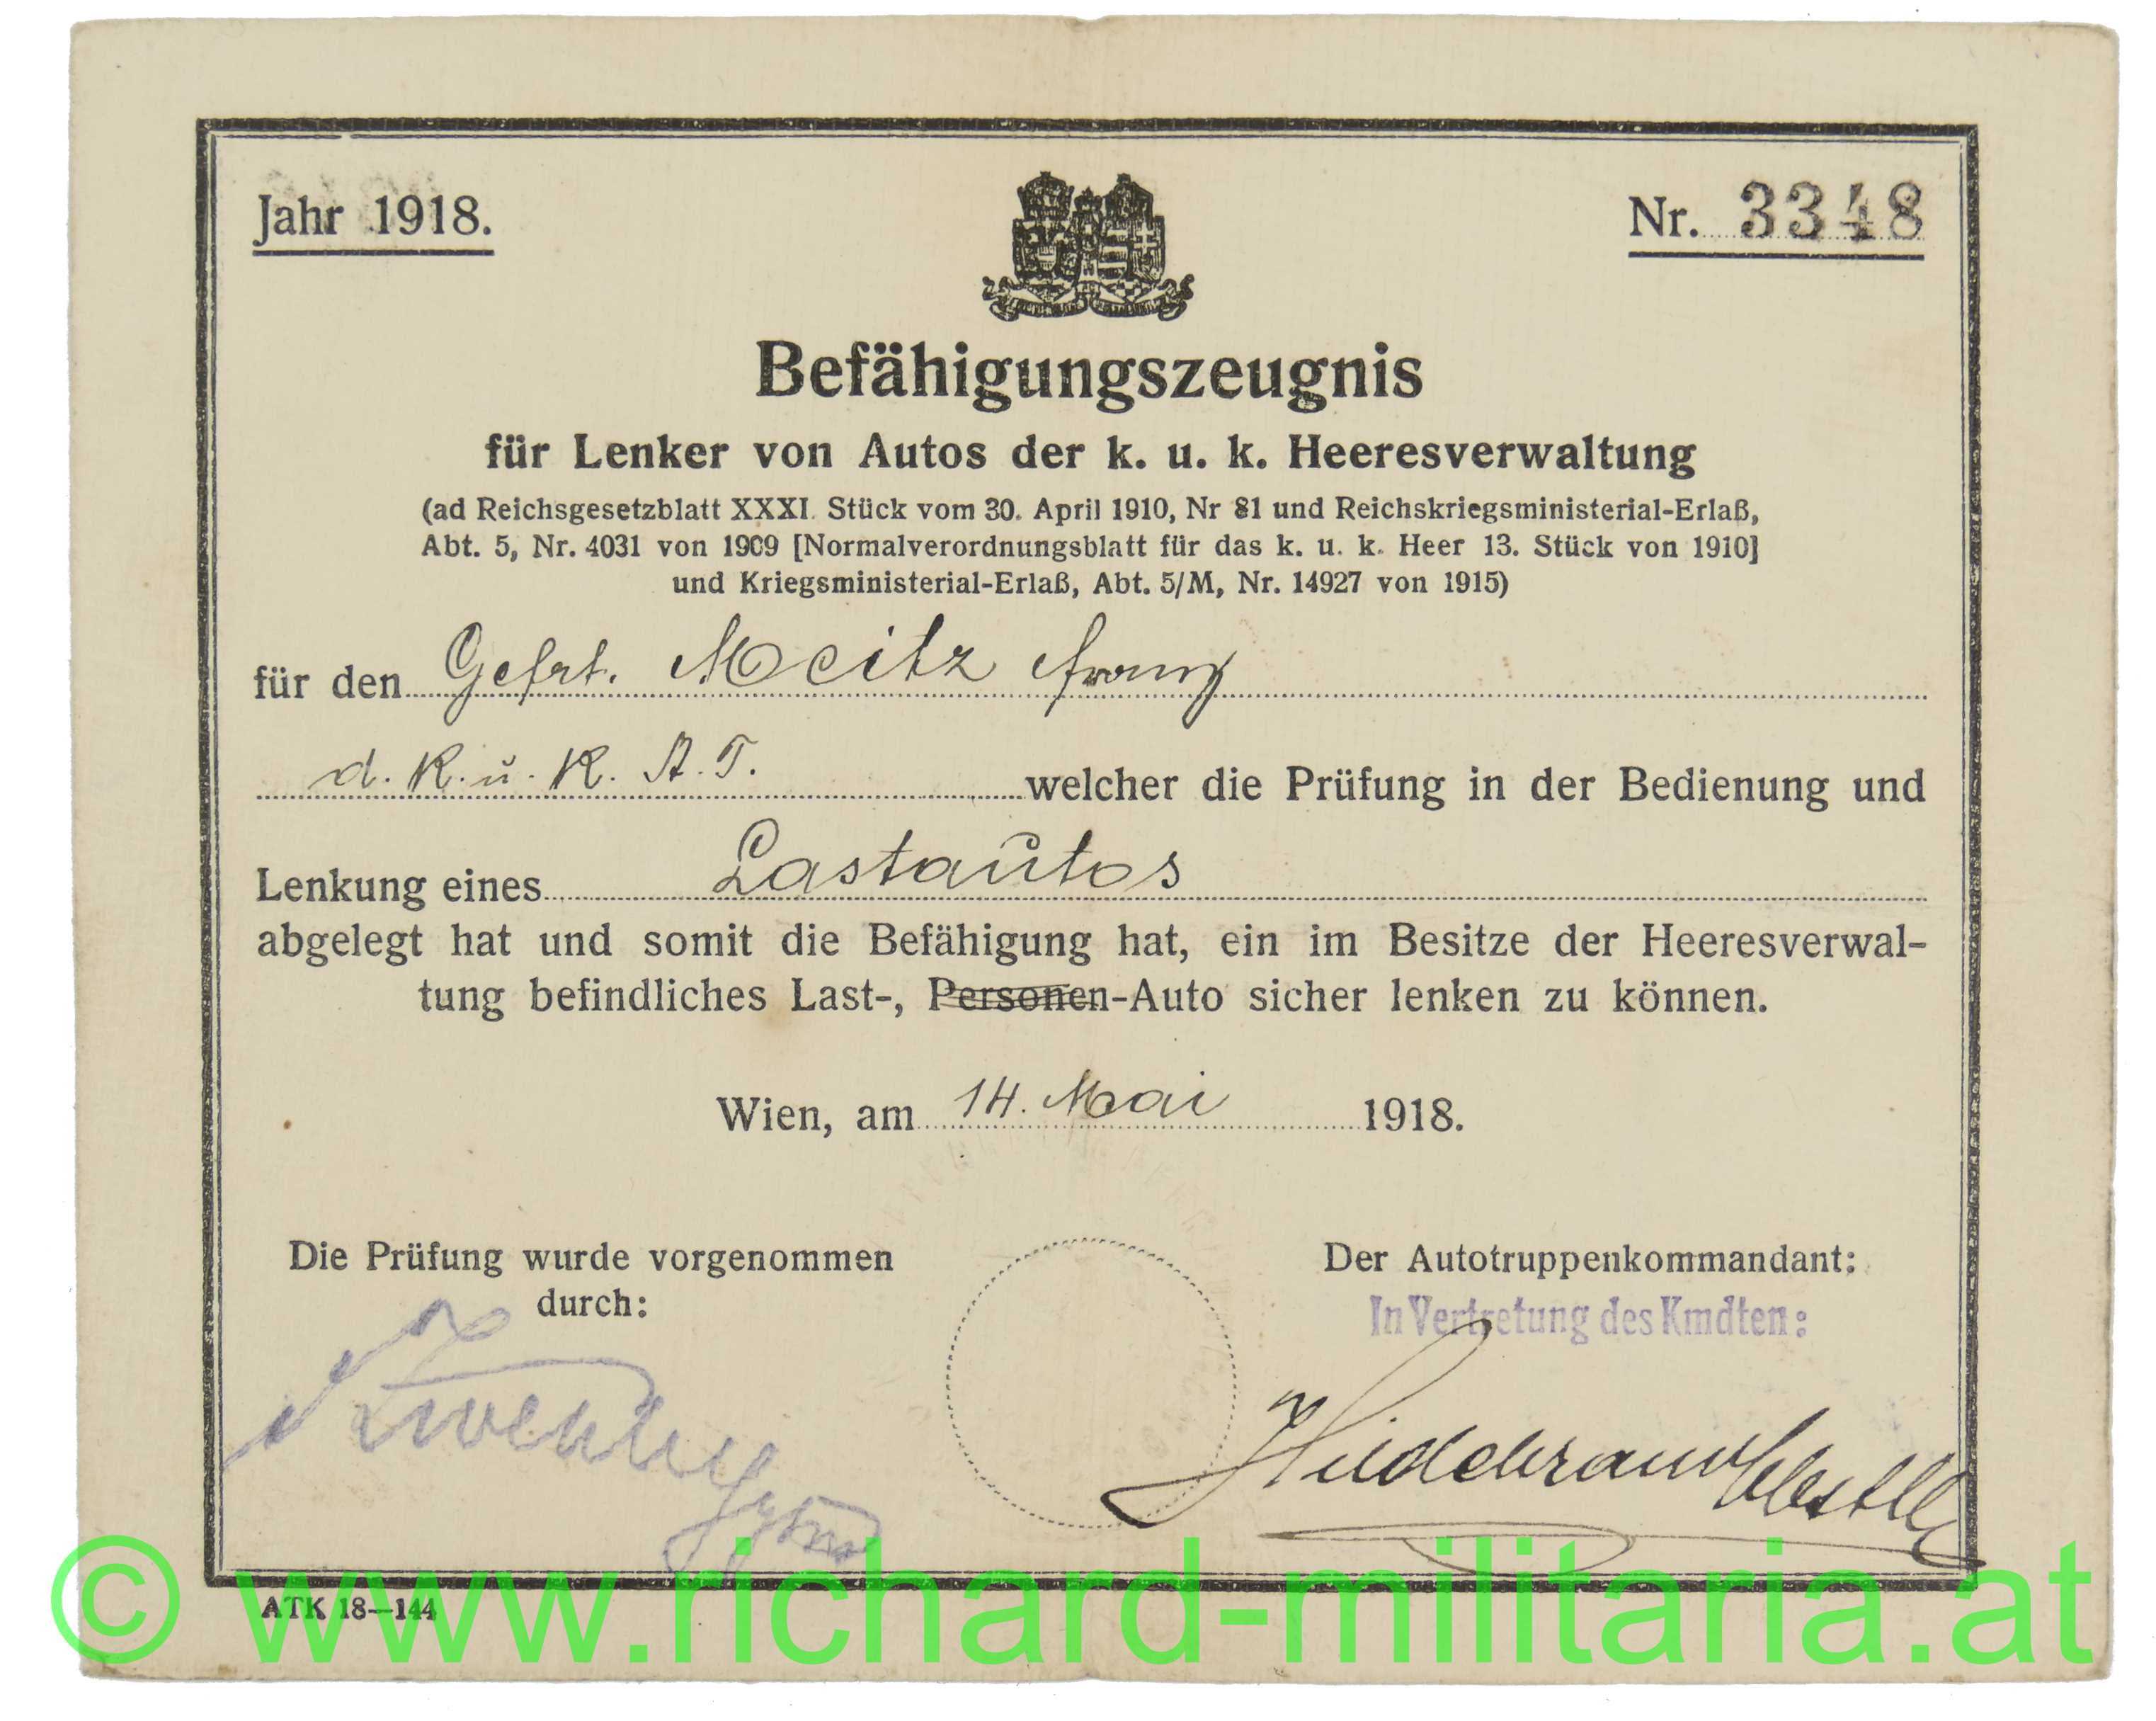 Jahr 1918.
Nr. 3348
Befähigungszeugnis
für Lenker von Autos der k. u. k. Heeresverwaltung
(ad Reichsgesetzblatt XXXI. Stück vom 30. April 1910, Nr 81 und Reichskriegsministerial-Erlaß,
Abt. 5, Nr. 4031 von 1909 [Normalverordnungsblatt für das k. u. k. Heer 13. Stück von 1910]
und Kriegsministerial-Erlaß, Abt. 5/M, Nr. 14927 von 1915)
für den Gefrt. Meitz Franz
d. K. u. K. A. T. welcher die Prüfung in der Bedienung und
Lenkung eines Lastautos
abgelegt hat und somit die Befähigung hat, ein im Besitze der Heeresverwal-
tung befindliches Last-, Personen-Auto sicher lenken zu können.
Wien, am 14. Mai 1918.
Die Prüfung wurde vorgenommen
durch:
Der Autotruppenkommandant:
In Vertretung des Kmdten:
ATK 18—144
© www.richard-militaria.at